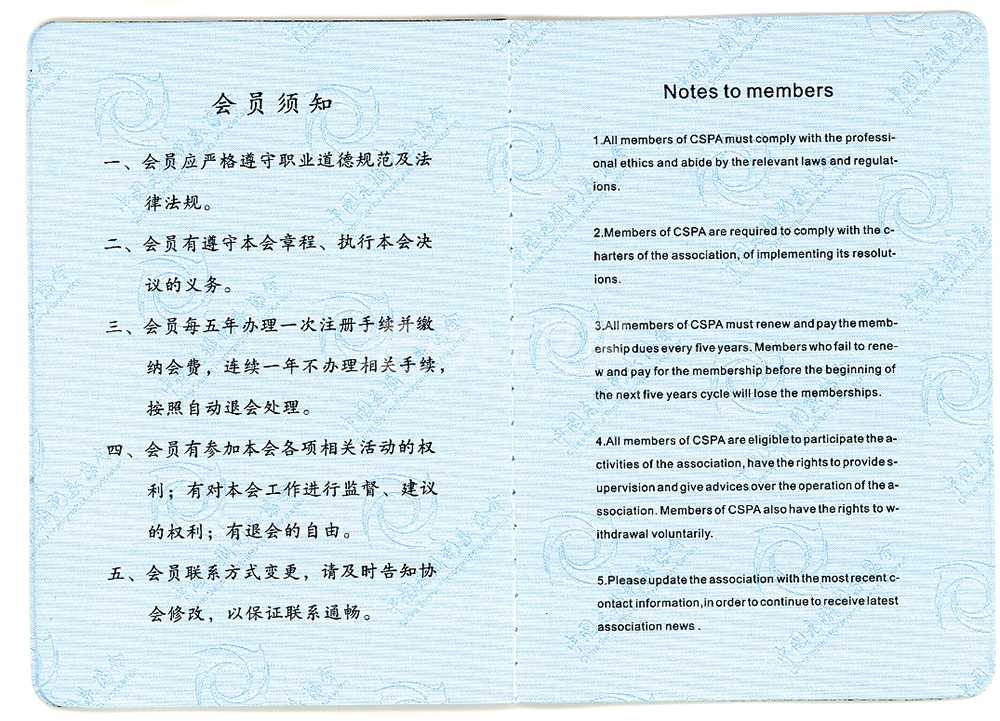 会员须知
一、会员应严格遵守职业道德规范及法
律法规。
二、会员有遵守本会章程、执行本会决
议的义务。
三、会员每五年办理一次注册手续并缴
纳会费，连续一年不办理相关手续，
按照自动退会处理。
四、会员有参加本会各项相关活动的权
利；有对本会工作进行监督、建议
的权利；有退会的自由。
五、会员联系方式变更，请及时告知协
会修改，以保证联系通畅。
Notes to members
1.All members of CSPA must comply with the professi-
onal ethics and abide by the relevant laws and regulat-
ions.
2.Members of CSPA are required to comply with the c-
harters of the association, of implementing its resolut-
ions.
3.All members of CSPA must renew and pay the memb-
ership dues every five years. Members who fail to rene-
w and pay for the membership before the beginning of
the next five years cycle will lose the memberships.
4.All members of CSPA are eligible to participate the a-
ctivities of the association, have the rights to provide s-
upervision and give advices over the operation of the a-
ssociation. Members of CSPA also have the rights to w-
ithdrawal voluntarily.
5.Please update the association with the most recent c-
ontact information,in order to continue to receive latest
association news .